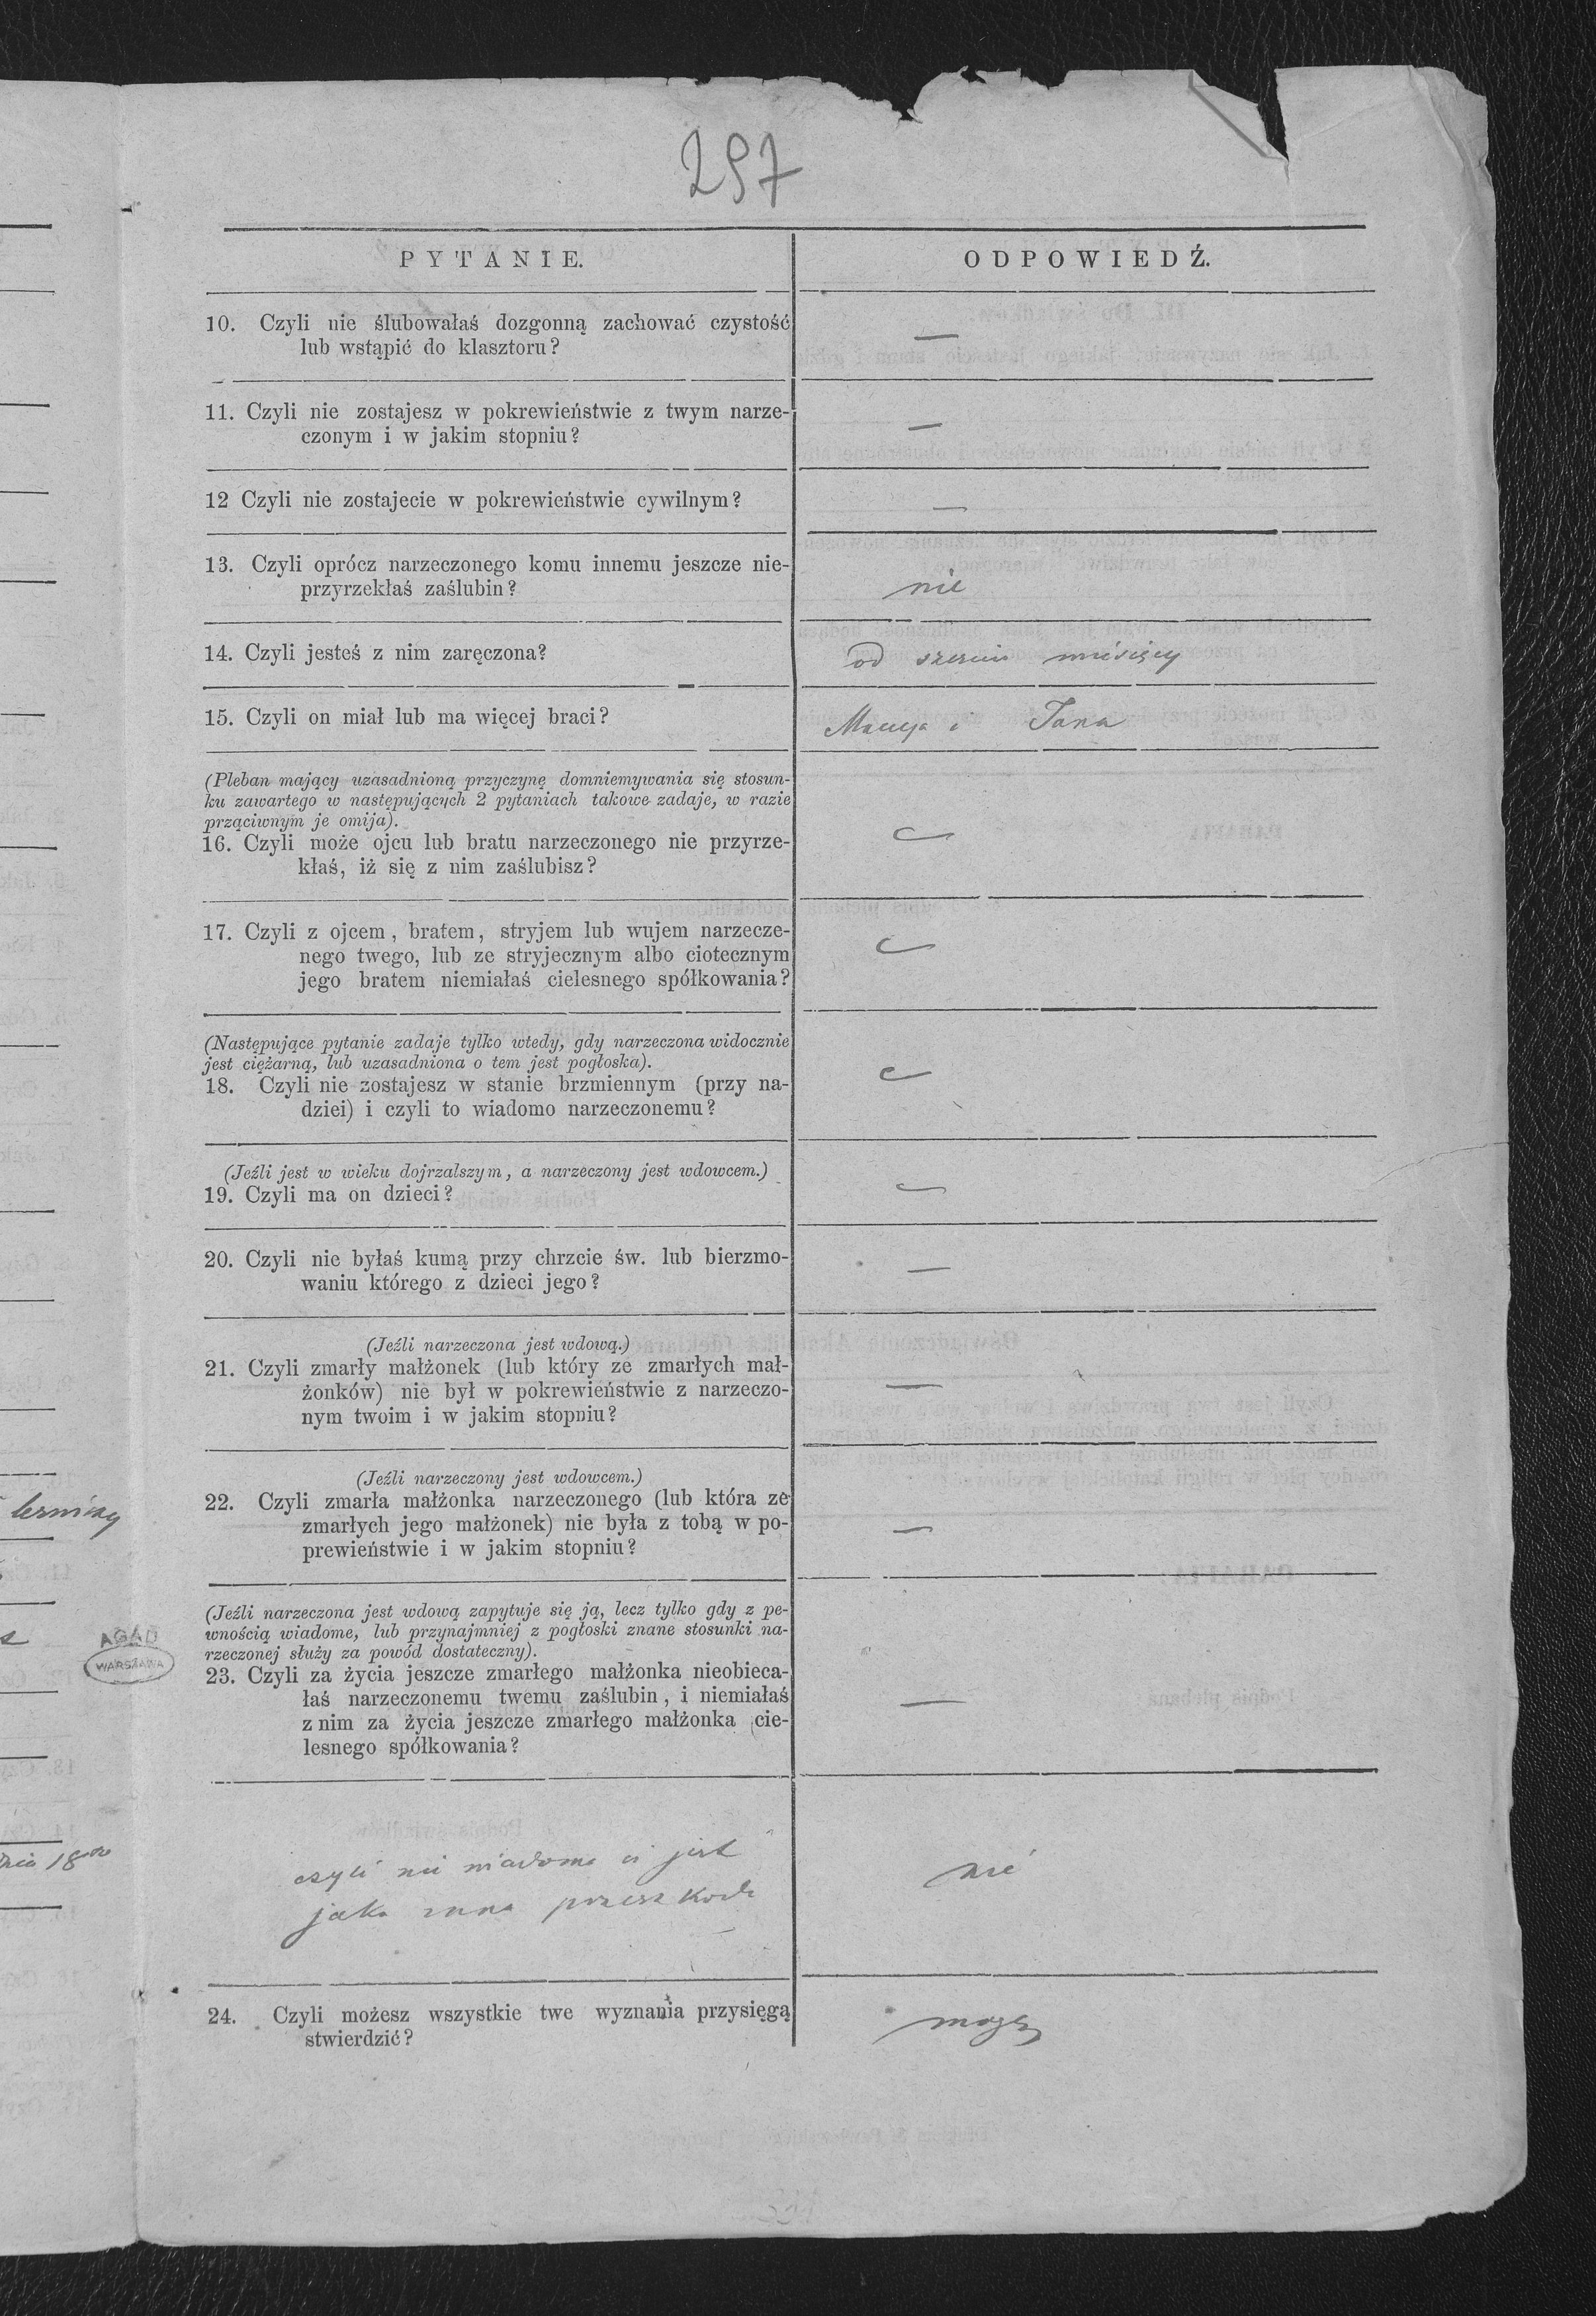 297
PYTANIE.
ODPOWIEDŹ.
10. Czyli nie ślubowałaś dozgonną zachować czystość
lub wstąpić do klasztoru?
—
11. Czyli nie zostajesz w pokrewieństwie z twym narze-
czonym i w jakim stopniu?
—
12 Czyli nie zostajecie w pokrewieństwie cywilnym?
—
13. Czyli oprócz narzeczonego komu innemu jeszcze nie-
przyrzekłaś zaślubin?
nie
14. Czyli jesteś z nim zaręczona?
od sześciu miesięcy
15. Czyli on miał lub ma więcej braci?
Macieja i Jana
(Pleban mający uzasadnioną przyczynę domniemywania się stosun-
ku zawartego w następujących 2 pytaniach takowe zadaje, w razie
prząciwnym je omija).
16. Czyli może ojcu lub bratu narzeczonego nie przyrze-
kłaś, iż się z nim zaślubisz?
17. Czyli z ojcem, bratem, stryjem lub wujem narzecze-
nego twego, lub ze stryjecznym albo ciotecznym
jego bratem niemiałaś cielesnego spółkowania?
(Następujące pytanie zadaje tylko wtedy, gdy narzeczona widocznie
jest ciężarną, lub uzasadniona o tem jest pogłoska).
18. Czyli nie zostajesz w stanie brzmiennym (przy na-
dziei) i czyli to wiadomo narzeczonemu?
(Jeźli jest w wieku dojrzalszym, a narzeczony jest wdowcem.)
19. Czyli ma on dzieci?
20. Czyli nie byłaś kumą przy chrzcie św. lub bierzmo-
waniu którego z dzieci jego?
—
(Jeźli narzeczona jest wdową.)
21. Czyli zmarły małżonek (lub który ze zmarłych mał-
żonków) nie był w pokrewieństwie z narzeczo-
nym twoim i w jakim stopniu?
—
(Jeźli narzeczony jest wdowcem.)
22. Czyli zmarła małżonka narzeczonego (lub która ze
zmarłych jego małżonek) nie była z tobą w po-
prewieństwie i w jakim stopniu?
—
(Jeźli narzeczona jest wdową zapytuje się ją, lecz tylko gdy z pe-
wnością wiadome, lub przynajmniej z pogłoski znane stosunki na-
rzeczonej służy za powód dostateczny).
23. Czyli za życia jeszcze zmarłego małżonka nieobieca-
łaś narzeczonemu twemu zaślubin, i niemiałaś
z nim za życia jeszcze zmarłego małżonka cie-
lesnego spółkowania?
—
AGAD
WARSZAWA
czyli nie wiadoma ci jest
jaka inna przeszkoda
nie
24. Czyli możesz wszystkie twe wyznania przysięgą
stwierdzić?
mogę